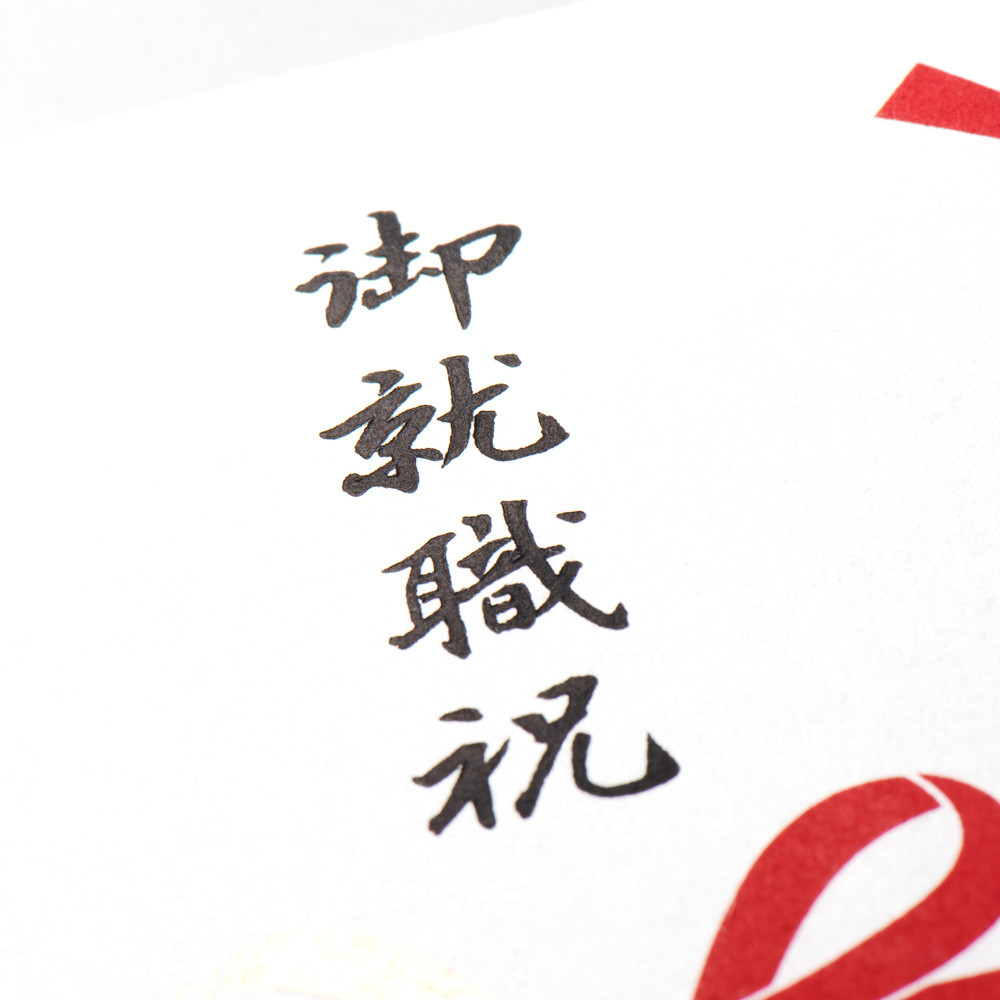 御就職祝